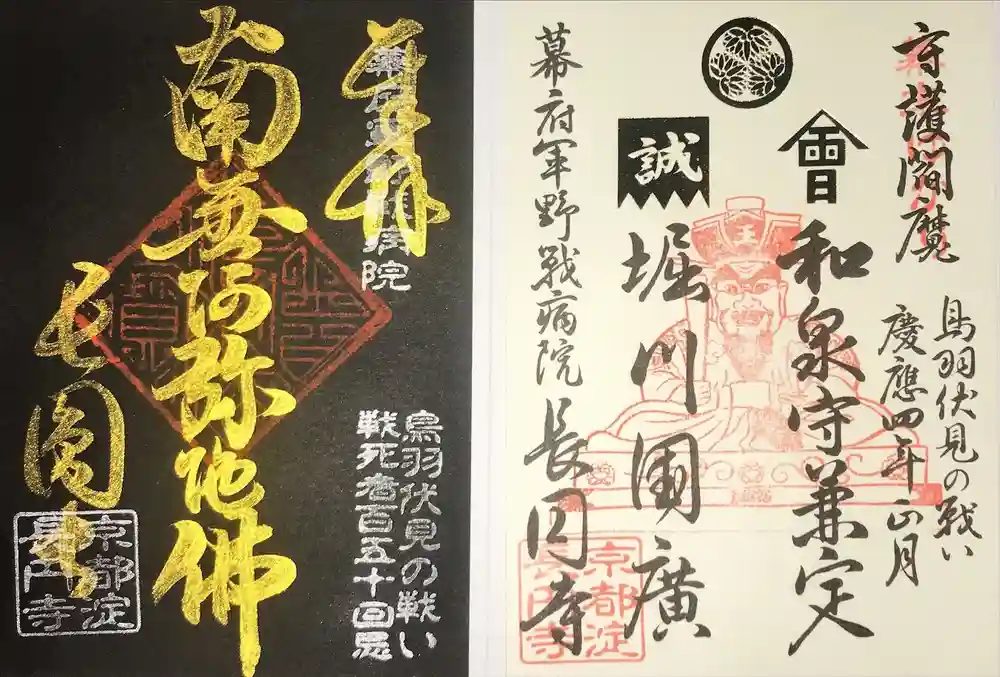 奉拝
幕府軍野戦病院
南無阿弥陀佛
長圓寺
鳥羽伏見の戦い
戦死者百五十回忌
京都淀
長円寺
守護閻魔
鳥羽伏見の戦い
慶應四年正月
會
和泉守兼定
誠
堀川國廣
王
幕府軍野戦病院
長円寺
京都淀
長円寺